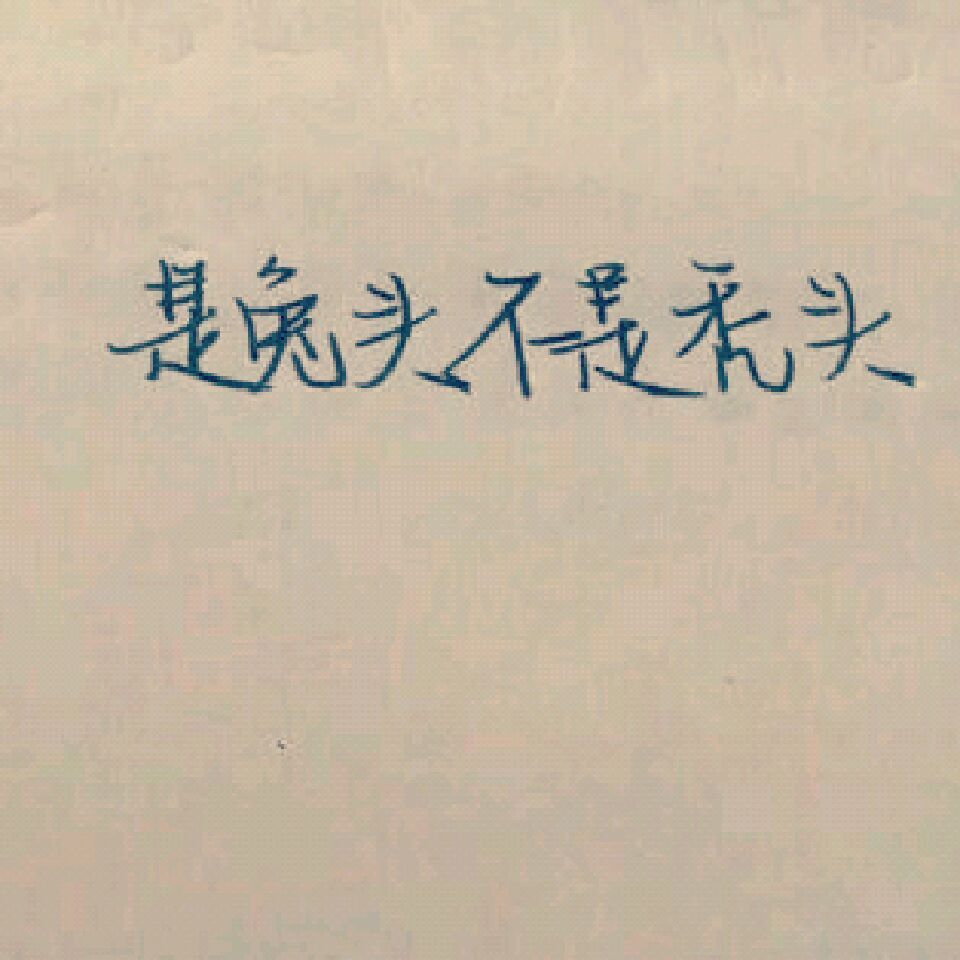 是兔头不是秃头